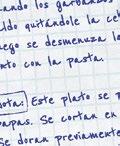 ando los garbanzos
ldo quitándole la ce
ego se desmenuza lo
nto con la pasta.
ota: Este plato se p
apas. Se cortan en
se doran previamente